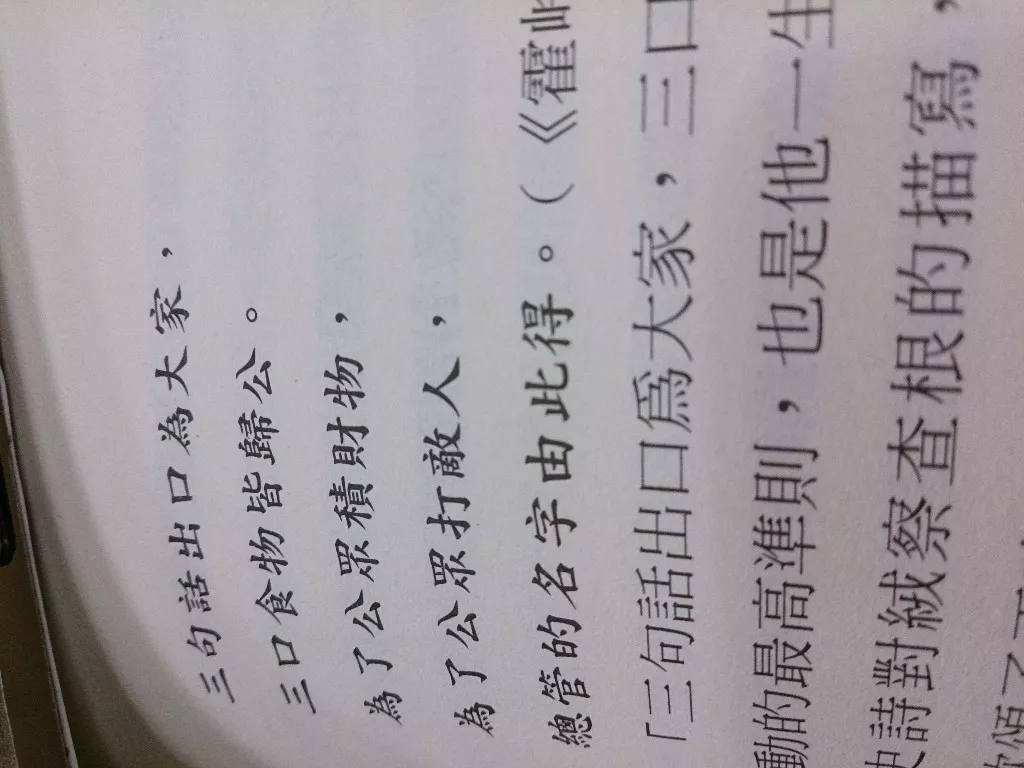 三句話出口為大家，
三口食物皆歸公。
為了公眾積財物，
為了公眾打敵人，
總管的名字由此得。（《霍
「三句話出口爲大家，三口
動的最高準則，也是他一生
史詩對絨察查根的描寫，